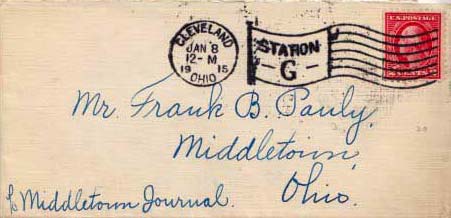 CLEVELAND
JAN 8
12-M
1915
OHIO
STATION
G
U.S. POSTAGE
2 CENTS 2
Mr. Frank B. Pauly,
Middletown,
Ohio.
c/o Middletown Journal.